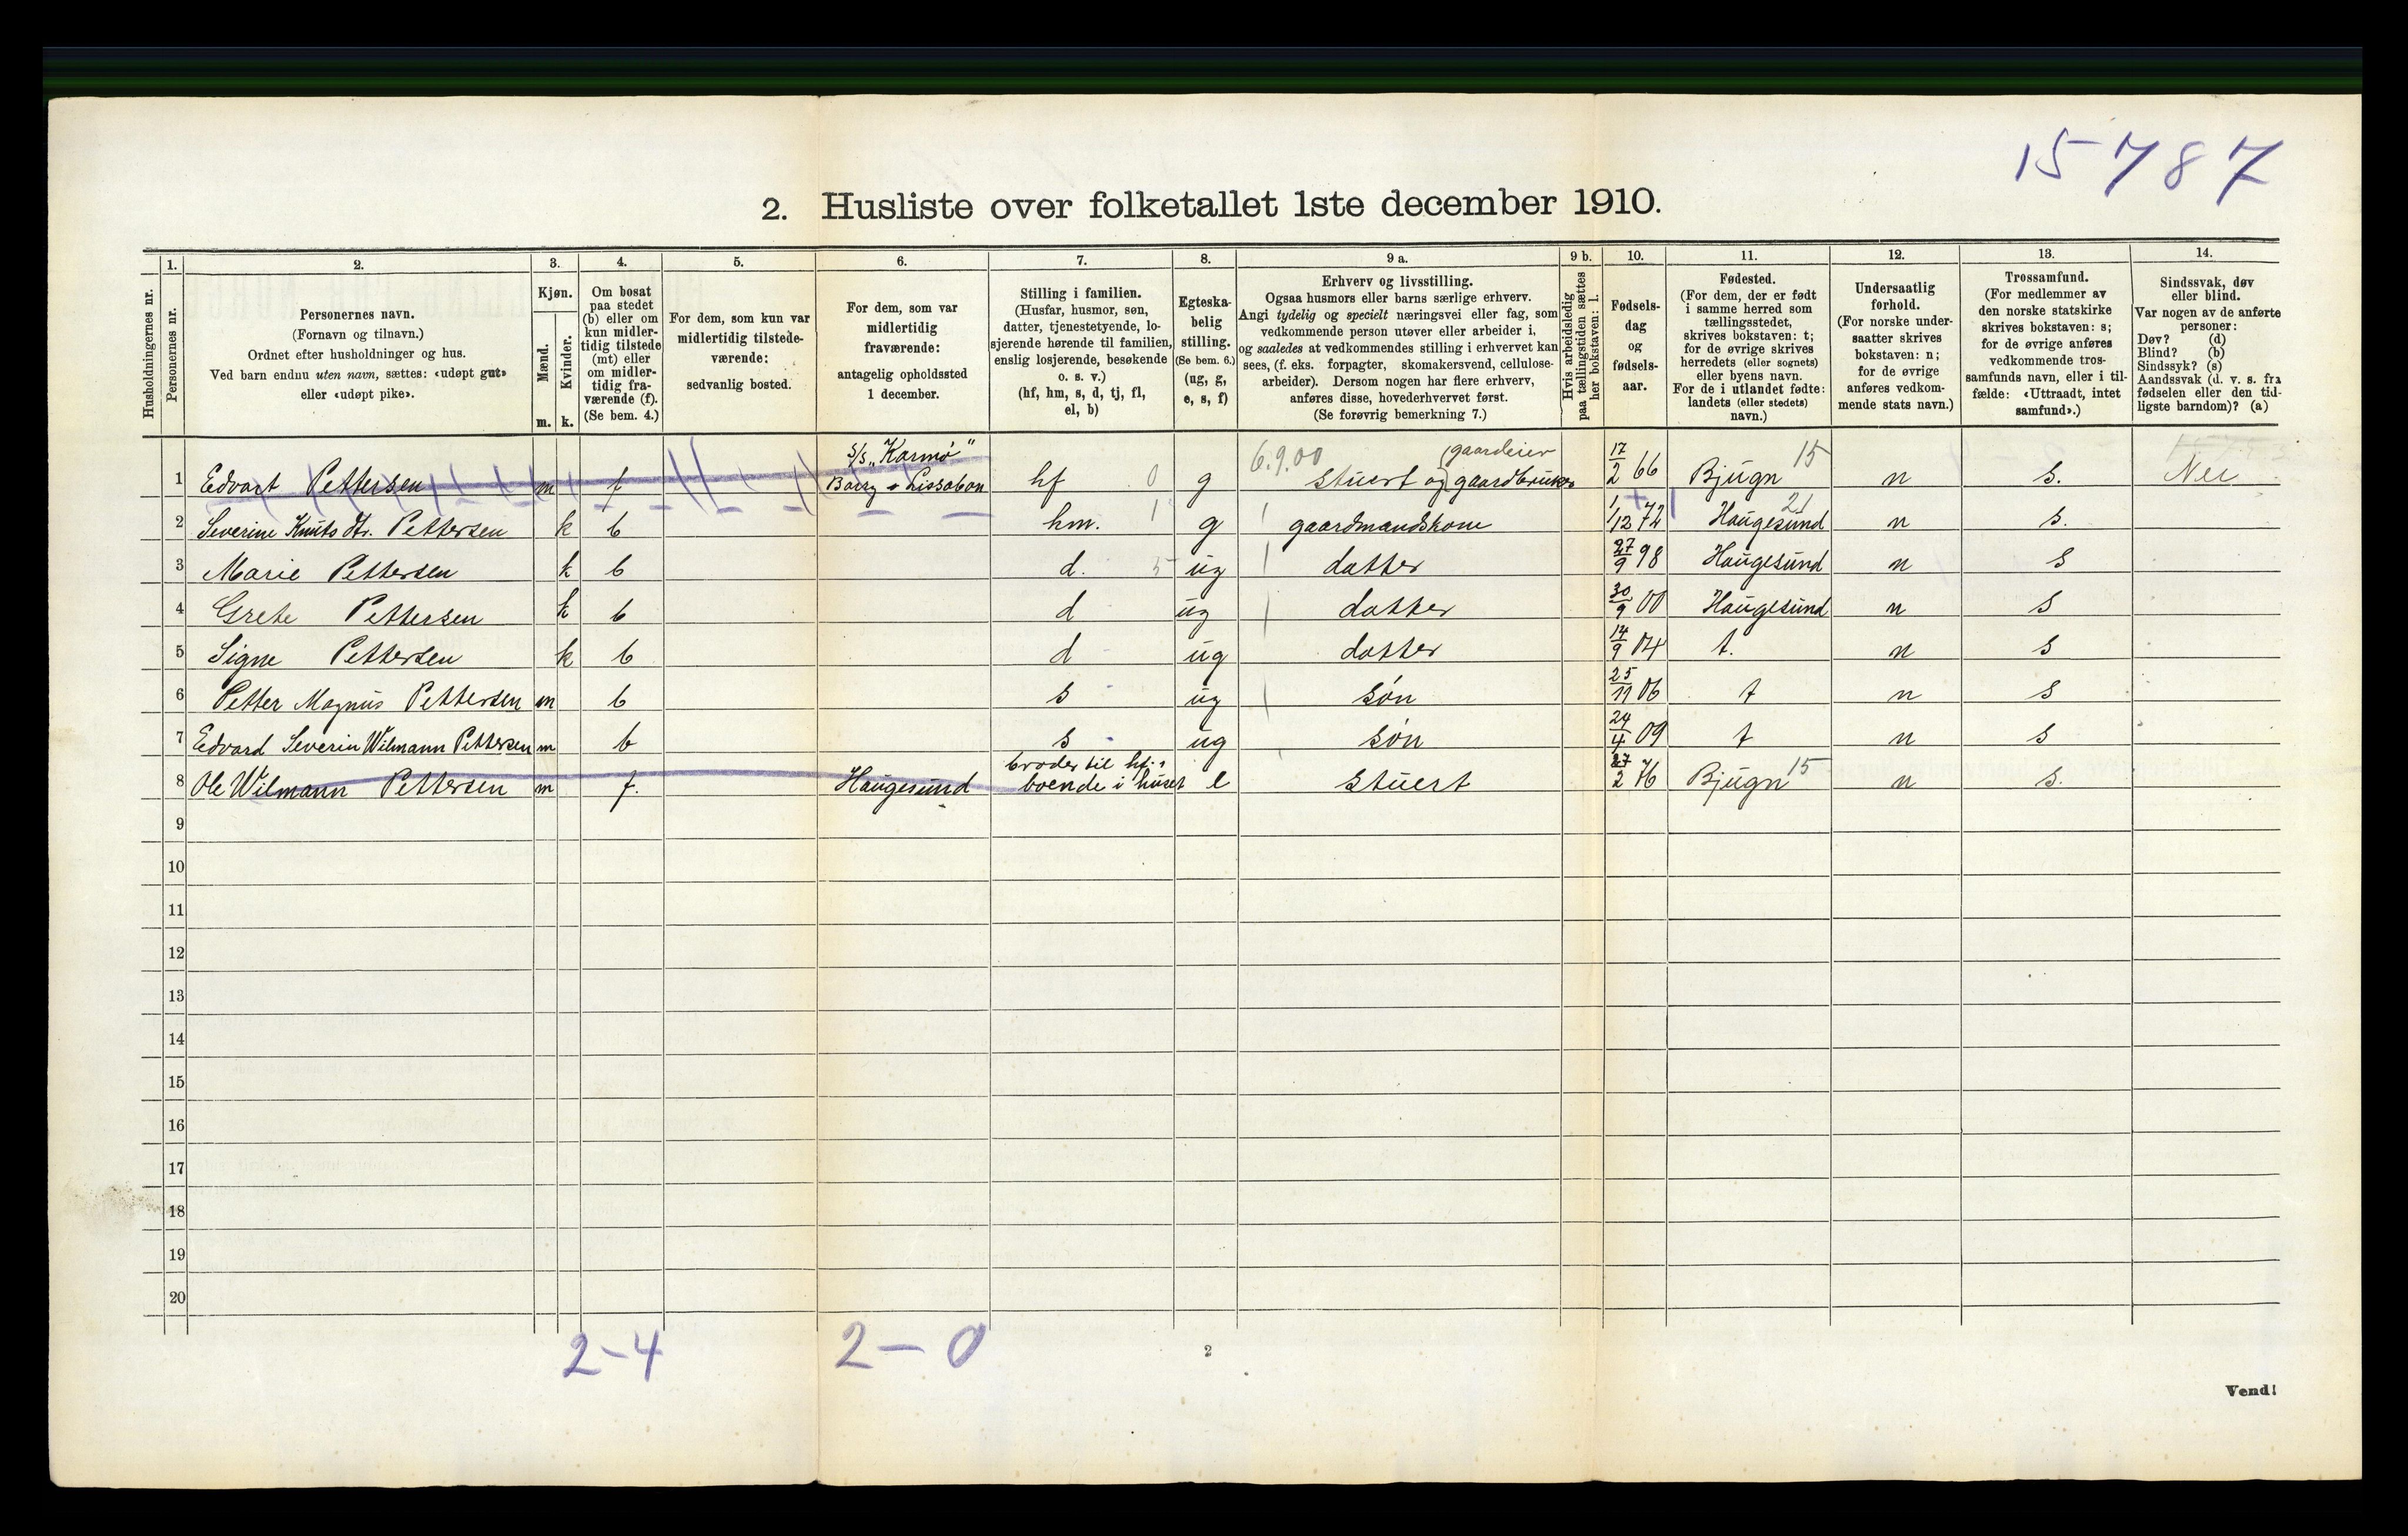 15787
2. Husliste over folketallet 1ste december 1910.
Husholdningernes nr.
1.
Personernes nr.
2.
Personernes navn.
(Fornavn og tilnavn.)
Ordnet efter husholdninger og hus.
Ved barn endnu uten navn, sættes: «udøpt gut»
eller «udøpt pike».
3.
Kjøn.
Mænd.
Kvinder.
m. k.
4.
Om bosat
paa stedet
(b) eller om
kun midler-
tidig tilstede
(mt) eller
om midler-
tidig fra-
værende (f).
(Se bem. 4.)
5.
For dem, som kun var
midlertidig tilstede-
værende:
sedvanlig bosted.
6.
For dem, som var
midlertidig
fraværende:
antagelig opholdssted
1 december.
7.
Stilling i familien.
(Husfar, husmor, søn,
datter, tjenestetyende, lo-
sjerende hørende til familien,
enslig losjerende, besøkende
o. s. v.)
(hf, hm, s, d, tj, fl,
el, b)
8.
Egteska-
belig
stilling.
(Se bem. 6.)
(ug, g,
e, s, f)
9 a.
Erhverv og livsstilling.
Ogsaa husmors eller barns særlige erhverv.
Angi tydelig og specielt næringsvei eller fag, som
vedkommende person utøver eller arbeider i,
og saaledes at vedkommendes stilling i erhvervet kan
sees, (f. eks. forpagter, skomakersvend, cellulose-
arbeider). Dersom nogen har flere erhverv,
anføres disse, hovederhvervet først.
(Se forøvrig bemerkning 7.)
9 b.
Hvis arbeidsledig
paa tællingstiden sættes
her bokstaven: l.
10.
Fødsels-
dag
og
fødsels-
aar.
11.
Fødested.
(For dem, der er født
i samme herred som
tællingsstedet,
skrives bokstaven: t;
for de øvrige skrives
herredets (eller sognets)
eller byens navn.
For de i utlandet fødte:
landets (eller stedets)
navn.)
12.
Undersaatlig
forhold.
(For norske under-
saatter skrives
bokstaven: n;
for de øvrige
anføres vedkom-
mende stats navn.)
13.
Trossamfund.
(For medlemmer av
den norske statskirke
skrives bokstaven: s;
for de øvrige anføres
vedkommende tros-
samfunds navn, eller i til-
fælde: «Uttraadt, intet
samfund».)
14.
Sindssvak, døv
eller blind.
Var nogen av de anførte
personer:
Døv? (d)
Blind? (b)
Sindssyk? (s)
Aandssvak (d. v. s. fra
fødselen eller den tid-
ligste barndom)? (a)
S/S „Karmö" 6.9.00 gaardeier
1 Edvart Pettersen m f Barry - Lissabon hf 0 g Stuert og gaardbruker 17/2 66 Bjugn 15 n s. Nei
2 Severine Knuts dtr. Pettersen k b hm. 1 g gaardmandskone 1/12 72 Haugesund 21 n s.
3 Marie Pettersen k b d. 5 ug datter 27/9 98 Haugesund n s
4 Grete Pettersen k b d ug datter 30/9 00 Haugesund n s
5 Signe Pettersen k b d ug datter 14/9 04 t. n s
6 Petter Magnus Pettersen m b s ug søn 25/11 06 t n s
7 Edvard Severin Wilmann Pettersen m b s ug søn 24/4 09 t n s
broder til hf.
8 Ole Wilmann Pettersen m f. Haugesund boende i huset e Stuert 27/2 76 Bjugn 15 n s.
9
10
11
12
13
14
15
16
17
18
19
20
2-4 2-0
2
Vend!